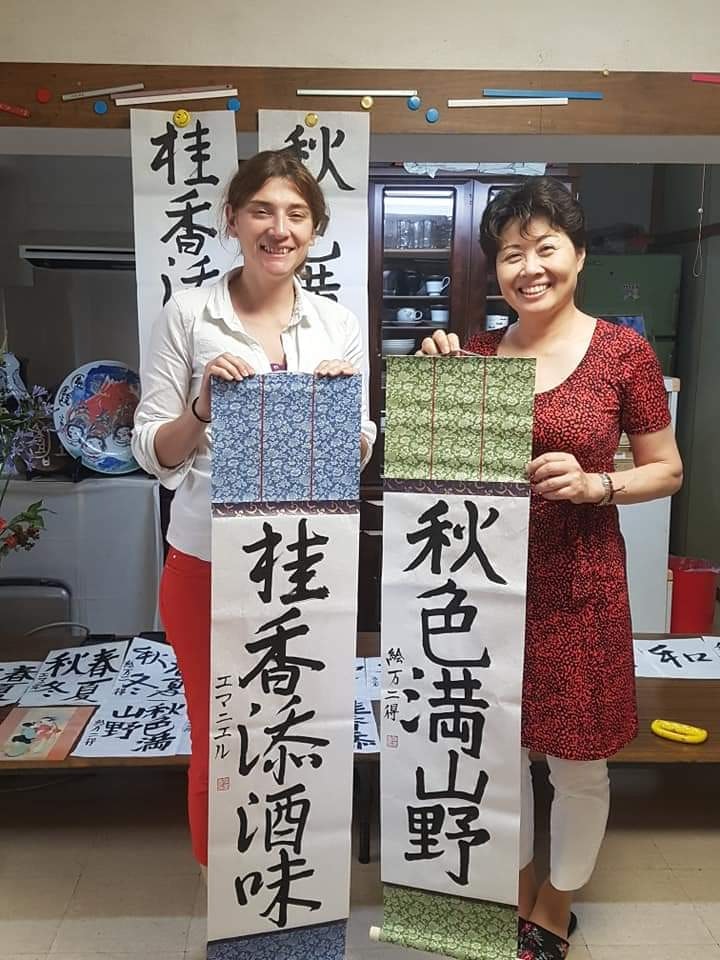 桂香添
秋
満
桂香添酒味
エマニエル
秋色満山野
絵万二得
春
夏
秋
冬
春
夏
秋
冬
秋色満
山野
絵万二得
和